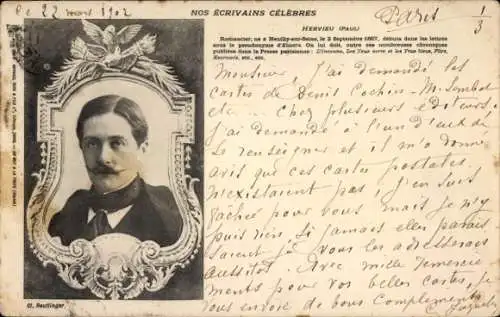 Le 22 mars 1902
NOS ÉCRIVAINS CÉLÈBRES
Paris
1/3
HERVIEU (PAUL)
Romancier, né à Neuilly-sur-Seine, le 2 Septembre 1857, débuta dans les lettres
sous le pseudonyme d'Éliacin. On lui doit, outre ses nombreuses chroniques
publiées dans la Presse parisienne : L'Inconnu, Les Yeux verts et les Yeux bleus, Flirt,
etc., etc.
Monsieur, j'ai demandé les
cartes de Denis Cochin - M. Sembat
etc... Chez plusieurs éditeurs.
J'ai demandé à l'un d'eux de
se renseigner et il m'a donné
avis que ces cartes postales
n'existaient pas ! J'en suis
fâchée pour vous mais je n'y
puis rien. Si jamais elles parais
saient je vous les adresserais
aussitôt. Avec mille remercie
ments pour vos belles cartes, je
vous envoie de bons compliments
Cl. Reutlinger